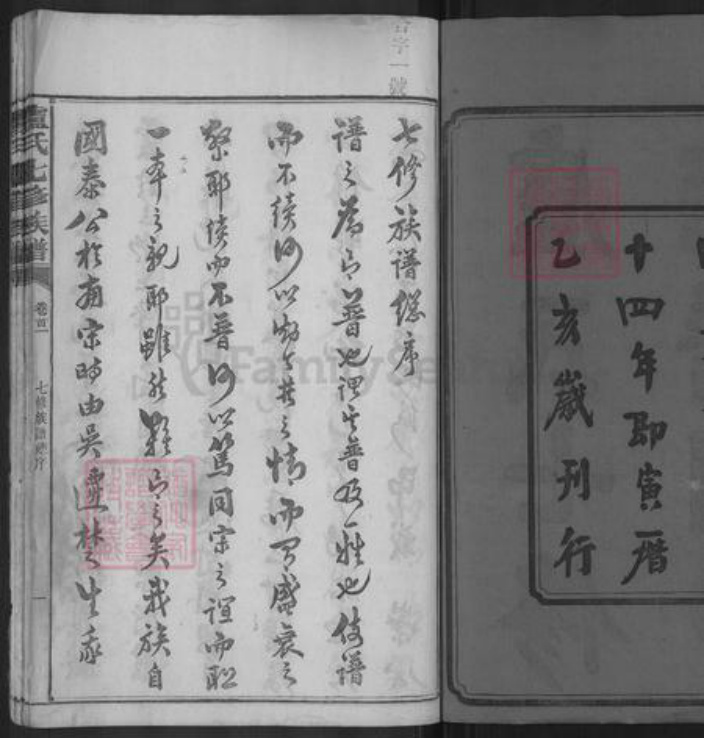 十四年即寅曆
乙亥歲刊行
字一號
七修族譜總序
譜之為言普也謂其普及一雅也使譜
而不續何以聯合其之情而乎盛衰之
祭耶續而不普何以篤同宗之誼而聯
一本之親耶雖然難言之矣我族自
國泰公於南宋時由吳遷楚生
氏七修族譜
卷首
七修族譜總序
一
FamilySearch